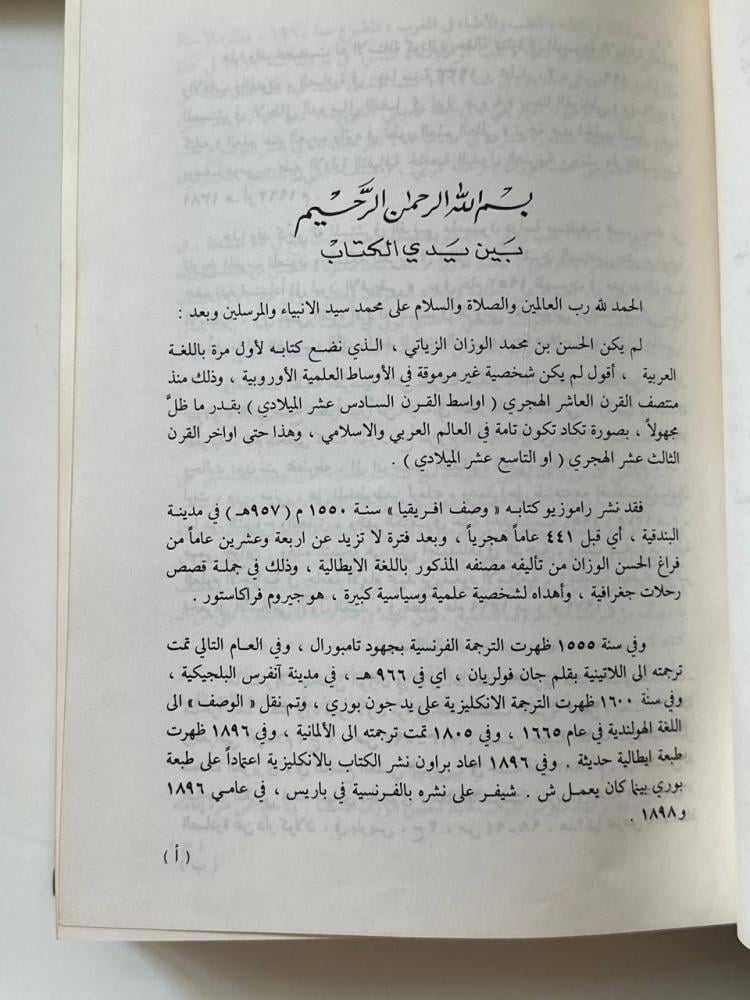 بسم الله الرحمن الرحيم
بين يدي الكتاب
الحمد لله رب العالمين والصلاة والسلام على محمد سيد الانبياء والمرسلين وبعد :
لم يكن الحسن بن محمد الوزان الزياتي ، الـذي نضـع كتابـه لأول مرة باللغة
العربية ، أقول لم يكن شخصية غير مرموقة في الأوساط العلمية الأوروبية ، وذلك منذ
منتصف القرن العاشر الهجري ( اواسط القـرن السـادس عشر الميلادي ) بقـدر ما ظلَّ
مجهولاً ، بصورة تكاد تكون تامة في العالم العربي والاسلامي ، وهذا حتى اواخر القرن
الثالث عشر الهجري ( او التاسع عشر الميلادي ) .
فقد نشر راموزيو كتابـه « وصف افريقيا » سنـة ١٥٥٠ م ( ٩٥٧هـ ) في مدينـة
البندقية ، أي قبل ٤٤١ عاماً هجرياً ، وبعد فترة لا تزيد عن اربعة وعشرين عاماً من
فراغ الحسن الوزان من تأليفه مصنفه المذكور باللغة الايطالية ، وذلك في جملـة قصص
رحلات جغرافية ، وأهداه لشخصية علمية وسياسية كبيرة ، هو جيروم فراكاستور .
وفي سنة ١٥٥٥ ظهرت الترجمة الفرنسية بجهود تامبورال ، وفي العـام التالي تمت
ترجمته الى اللاتينية بقلم جان فولريان ، اي في ٩٦٦ هـ ، في مدينة آنفرس البلجيكية ،
وفي سنة ١٦٠٠ ظهرت الترجمة الانكليزية على يد جون بوري ، وتم نقل « الوصف » الى
اللغة الهولندية في عام ١٦٦٥ ، وفي ١٨٠٥ تمت ترجمته الى الألمانية ، وفي ١٨٩٦ ظهرت
طبعة ايطالية حديثة . وفي ١٨٩٦ اعاد براون نشر الكتاب بالانكليزية اعتماداً على طبعة
بوري بينما كان يعمـل ش . شيفـر على نشره بالفرنسية في باريس ، في عامـي ١٨٩٦
و ١٨٩٨ .
( أ )